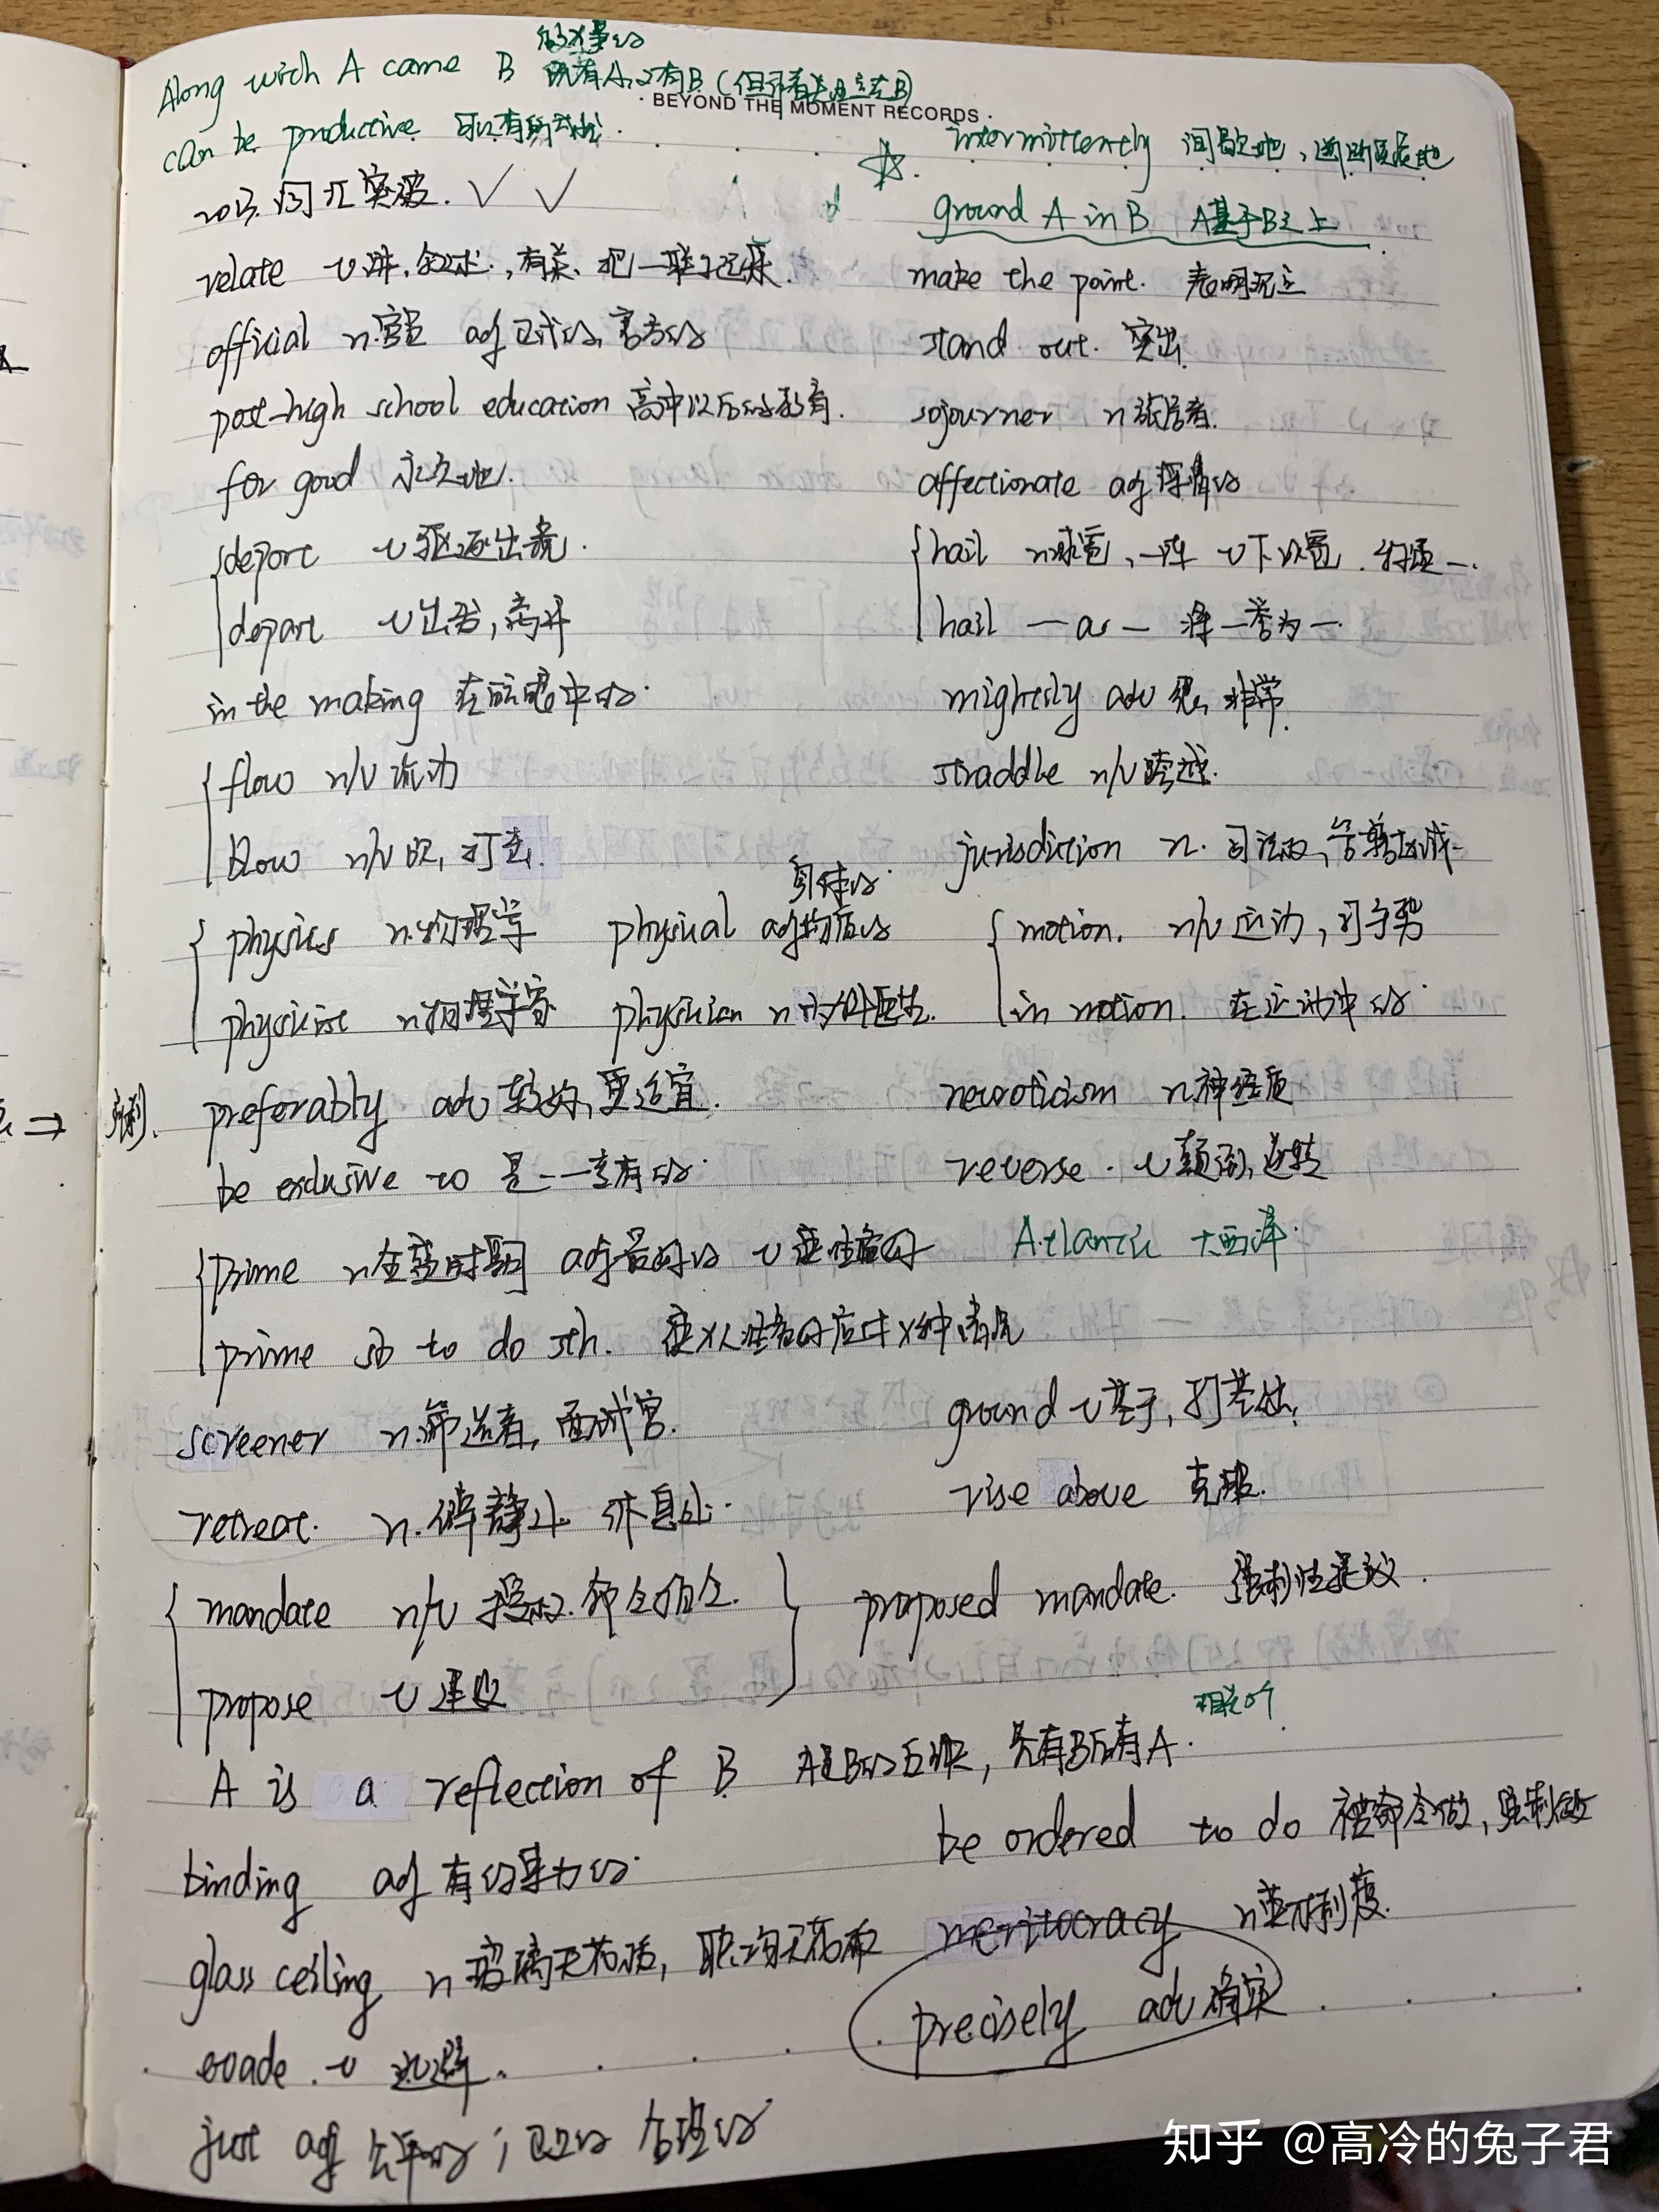 Along with A came B 既有A,又有B(但作者关注点在B)
BEYOND THE MOMENT RECORDS
can be productive 可以有所
intermittently 间歇地,
2013.词汇突破. ✓ ✓
☆. ground A in B A基于B之上
relate v讲,叙述.,有关、把一联了起来
make the point. 表明观点
official n.官员 adj正式的,官方的
stand out. 突出
post-high school education 高中以后的教育.
sojourner n旅居者.
for good 永久地.
affectionate adj深情的
deport v驱逐出境.
hail n冰雹,一阵 v下冰雹.
depart v出发,离开
hail — as — 将—誉为—.
in the making 在酝酿中的.
mightily adv 很,非常.
flow n/v流动
straddle n/v跨越.
blow n/v吹,打击.
jurisdiction n. 司法权,管辖区域
身体的.
physics n.物理学 physical adj物质的
motion. n/v运动,打手势
physicist n物理学家 physician n内外科医生.
in motion. 在运动中的.
preferably adv较好,更适宜.
neuroticism n神经质
be exclusive to 是——专有的.
reverse. v颠倒,逆转
prime n全盛时期 adj最好的 v使准备好
Atlantic 大西洋.
prime sb to do sth. 使X人准备好应对X种情况
screener n.筛选者,面试官.
ground v基于,打基础,
retreat. n.僻静处 休息处.
rise above 克服.
mandate n/v 授权.命令
proposed mandate. 强制性提议.
propose v建议
相关的
A is a reflection of B A是B的反映,只有B后有A.
be ordered to do 被命令做,强制做
binding adj有约束力的.
glass ceiling n玻璃天花板,职场天花板
meritocracy n英才制度.
precisely adv确实
evade.v 逃避.
just adj公平的;正义的 合理的
知乎 @高冷的兔子君